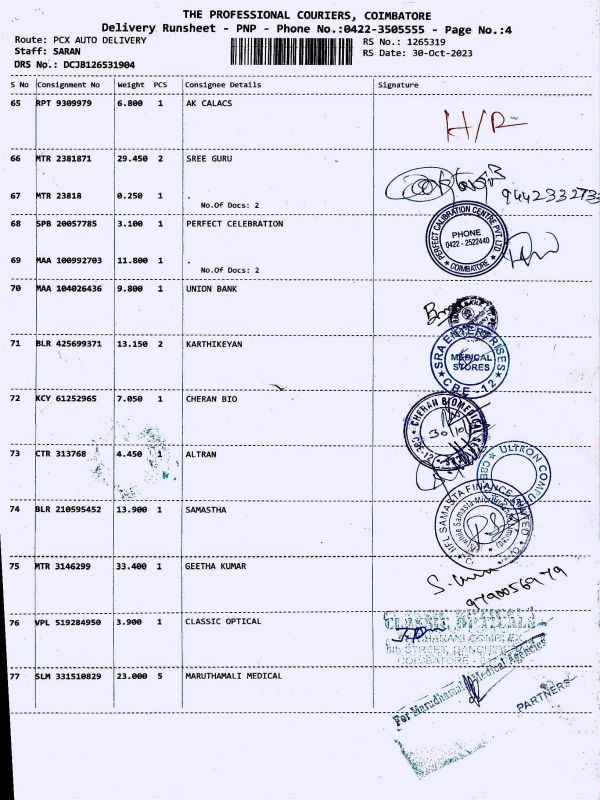 THE PROFESSIONAL COURIERS, COIMBATORE
Delivery Runsheet - PNP - Phone No.:0422-3505555 - Page No.:4
Route: PCX AUTO DELIVERY RS No.: 1265319
Staff: SARAN RS Date: 30-Oct-2023
DRS No.: DCJB126531904
S No Consignment No Weight PCS Consignee Details Signature
65 RPT 9309979 6.800 1 AK CALACS
H/R
66 MTR 2381871 29.450 2 SREE GURU
67 MTR 23818 0.250 1 .
No.Of Docs: 2
9442332733
68 SPB 20057785 3.100 1 PERFECT CELEBRATION
PERFECT CALIBRATION CENTRE PVT. LTD
PHONE
0422 - 2522440
COIMBATORE
69 MAA 100992703 11.800 1 .
No.Of Docs: 2
70 MAA 104026436 9.800 1 UNION BANK
71 BLR 425699371 13.150 2 KARTHIKEYAN
SRA ENTERPRISES
MEDICAL
STORES
CBE-12
72 KCY 61252965 7.050 1 CHERAN BIO
CHERAN BIOMEDICAL
30/10
CBE-12
73 CTR 313768 4.450 1 ALTRAN
ULTRON COMPU
CBE
74 BLR 210595452 13.900 1 SAMASTHA
IIFL SAMASTA FINANCE LIMITED
75 MTR 3146299 33.400 1 GEETHA KUMAR
9790056979
76 VPL 519284950 3.900 1 CLASSIC OPTICAL
CLASSIC OPTICALS
COMPLEX
5th STREET,
COIMBATORE
77 SLM 331510829 23.000 5 MARUTHAMALI MEDICAL
For Marudhamal Medical Agencies
PARTNERS